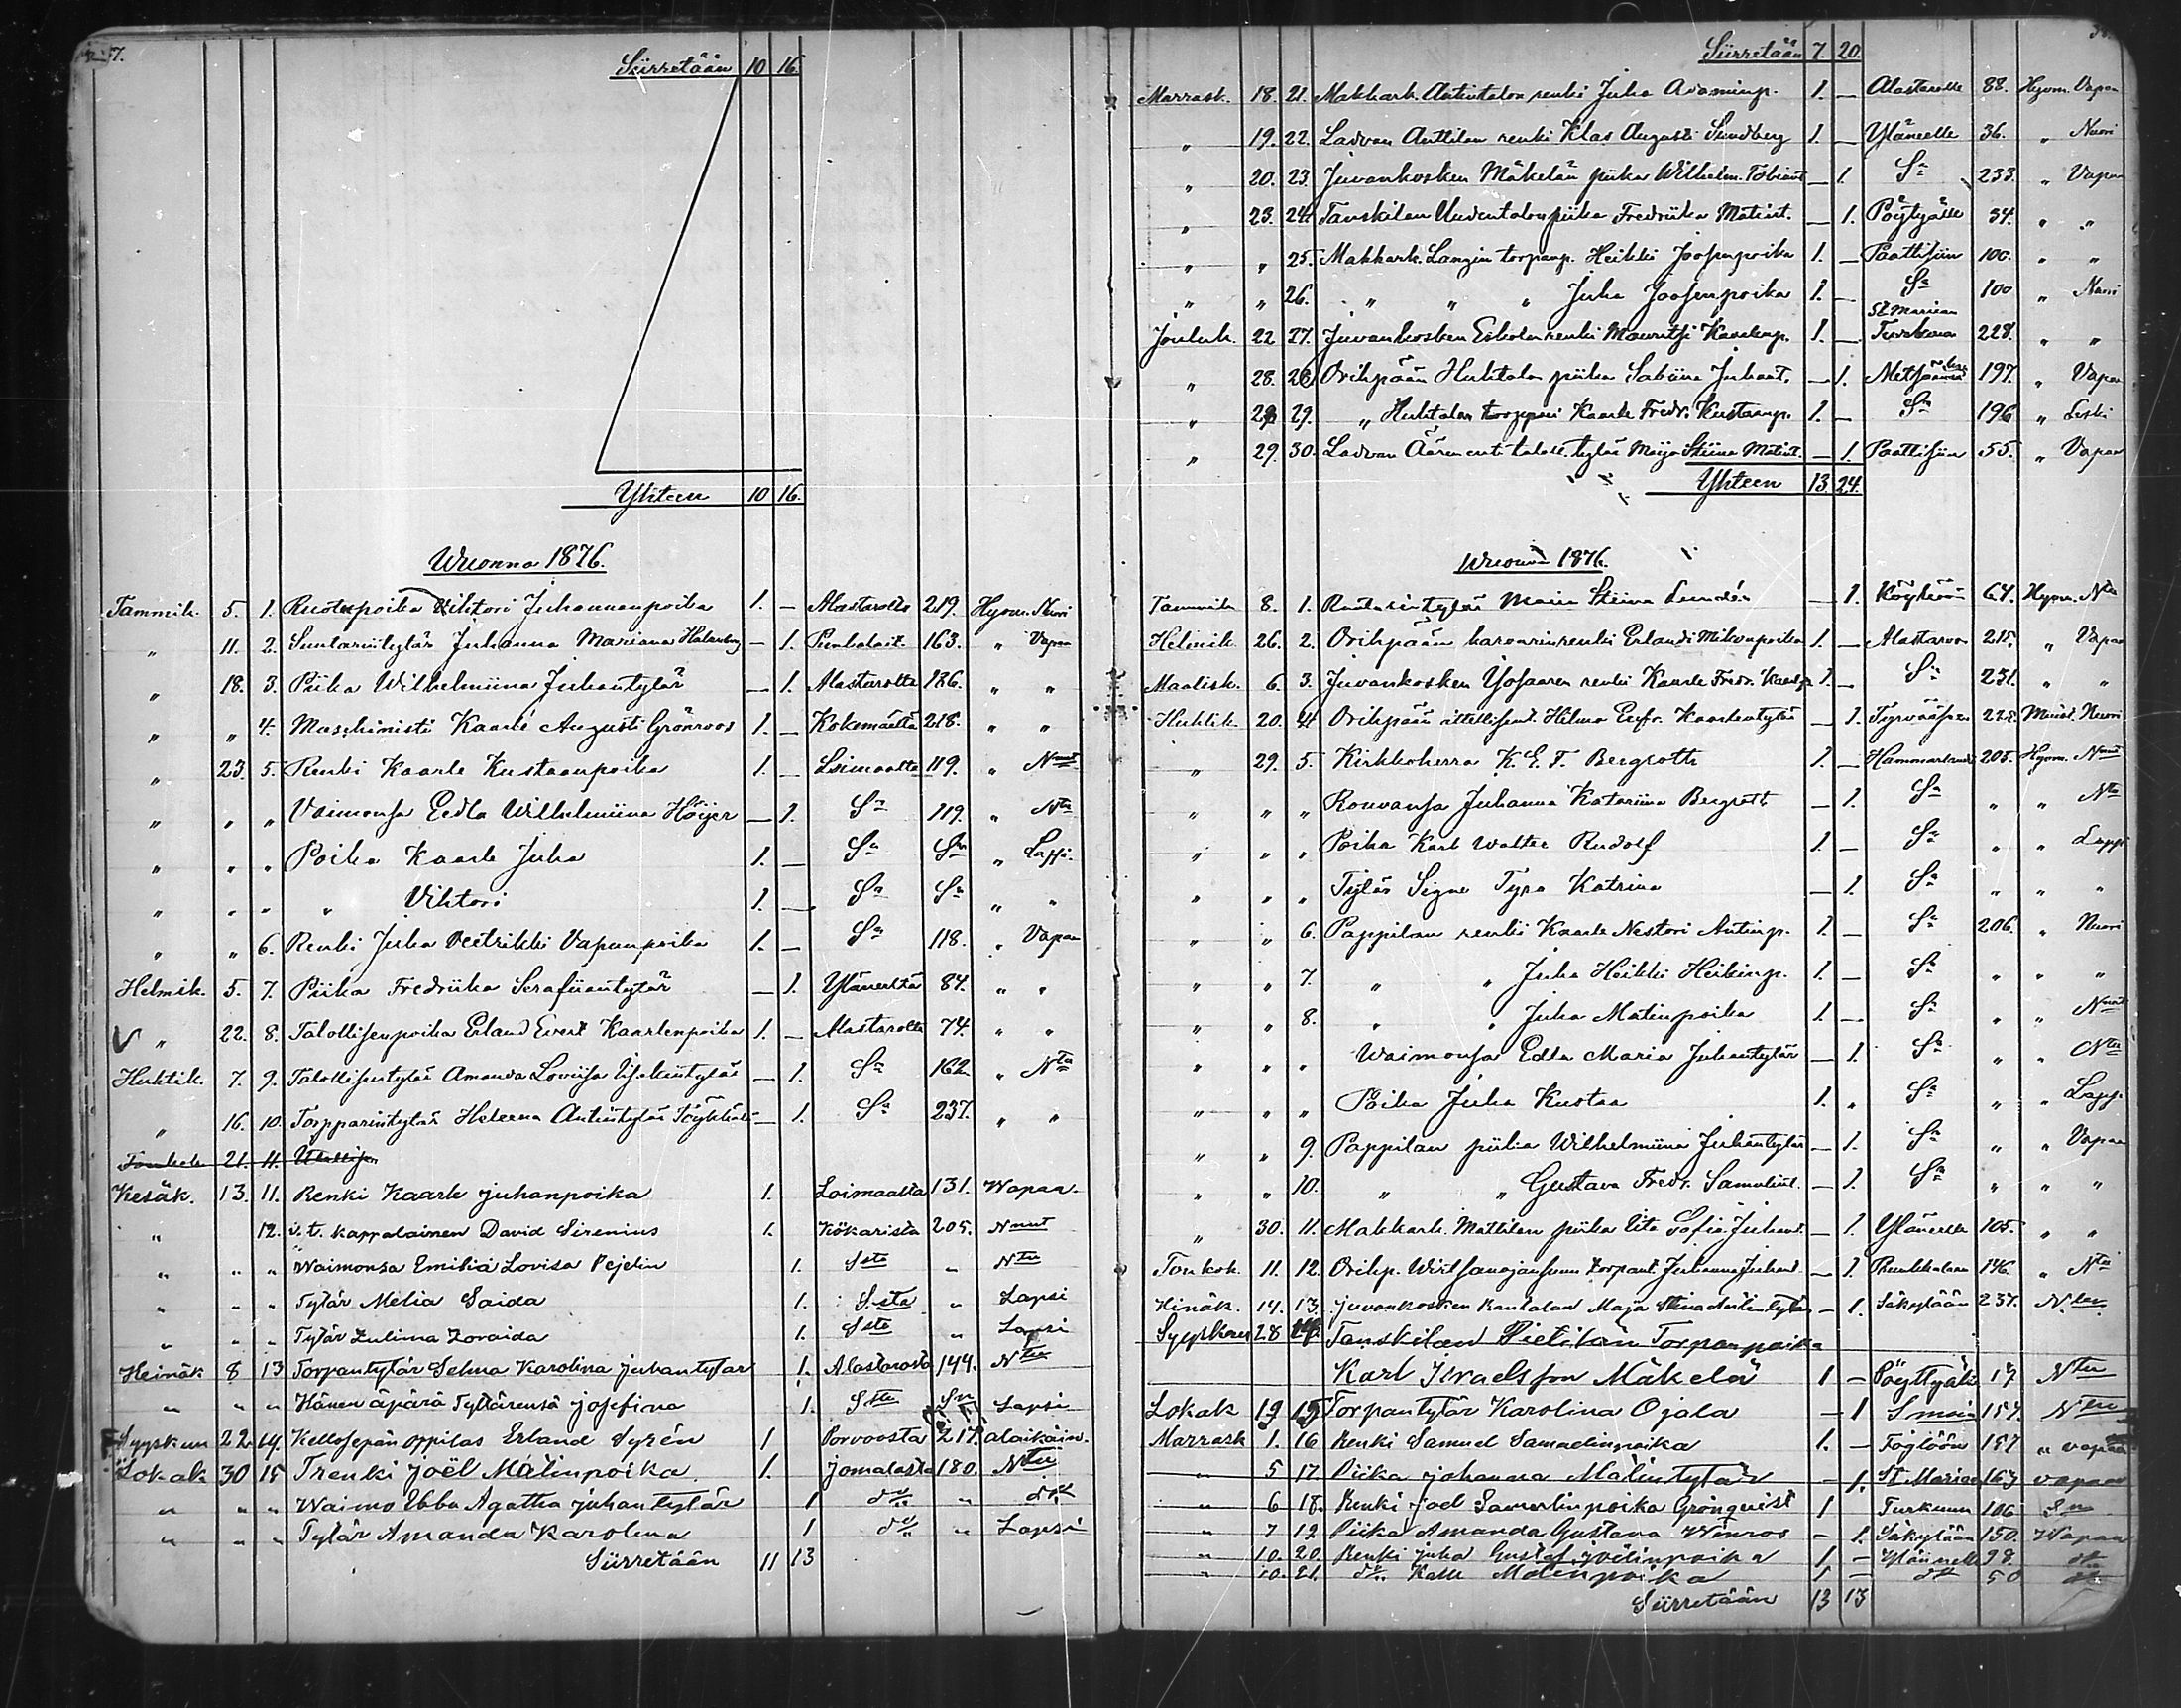 57.
Siirretään 10 16.
Yhteen 10 16.
Wuonna 1876.
Tammik. 5. 1. Ruotupoika Vihtori Juhannanpoika 1. — Alastarolta 219. Hyvin. Nuori
„ 11. 2. Suutarintytär Juhanna Mariana — 1. Punkalait. 163. „ Vapaa
„ 18. 3. Piika Wilhelmiina Juhantytär — 1. Alastarolta 186. „ „
„ „ 4. Maschinisti Kaarle Augusti Grönroos 1. — Kokemäeltä 218. „ „
„ 23. 5. Renki Kaarle Kustaanpoika 1. — Loimaalta 119. „ Nnut
„ „ „ Vaimonsa Eedla Wilhelmiina Höijer — 1. Sa 119. „ Ntu
„ „ „ Poika Kaarle Juha 1. — Sa Sa „ Lapsi.
„ „ „ „ Vihtori 1. — Sa Sa „ „
„ „ 6. Renki Juha Veetrikki Vapunpoika 1. — Sa 118. „ Vapaa
Helmik. 5. 7. Piika Fredriika Serafiantytär — 1. Yläneeltä 84. „ „
„ 22. 8. Talollisenpoika Erland Evert Kaarlenpoika 1. — Alastarolta 74. „ „
Huhtik. 7. 9. Talollisentytär Amanda Loviisa — 1. Sa 162 „ Ntu
„ 16. 10. Torpparintytär Heleena Antintytär — 1. Sa 237. „ „
21. 11.
Kesäk. 13. 11. Renki Kaarle juhanpoika 1. Loimaalta 131. Wapaa.
„ 12. v.t. kappalainen David Sirenius 1. Kökarista 205. Nnut
„ „ „ Waimonsa Emilia Lovisa Pejelin 1. Sta „ Ntu
„ „ „ Tytär Melia Saida 1. Sta „ Lapsi
„ „ „ Tytär Zulima Zoraida 1. Sta „ Lapsi
Heinäk 8 13 Torpantytär Selma Karolina juhantytar 1. Alastarosta 144. Ntu
„ „ „ Hänen äpärä Tyttärensä josefina 1. Sta Sn Lapsi
Syyskuu 22. 14. Kellosepän oppilas Erland Syrén 1 Porvoosta 217. alaikäin.
Lokak 30 15 Trenki joël Matinpoika 1. jomalasta 180. Ntu
„ „ „ Waimo Ebba Agatha juhantytär 1 do „ do
„ „ „ Tytär Amanda Karolina 1 do „ Lapsi
Siirretään 11 13
Siirretään 7. 20.
Marrask. 18. 21. Makkark. Antintalon renki Juha Adaminp. 1. — Alastarolle 88. Hyvin. Vapaa
„ 19. 22. Ladvan Anttilan renki Klas Augusti Sundberg 1. — Yläneelle 36. „ Nuori
„ 20. 23. Juvankosken Mäkelän piika Wilhelm. — 1. Sa 233. „ Vapaa
„ 23. 24. Tanskilan Uudentalon piika Fredrika Matint. — 1. Pöytyälle 34. „ „
„ „ 25. Makkark. Langin torpanp. Heikki Joosepinpoika 1. — Paattisiin 100. „ „
„ „ 26. „ „ „ Juha Joosenpoika 1. — Sa 100 „ Nuori
Jouluk. 22 27. Juvankosken Eskolan renki Mauritsi Kaarlenp. 1. — St Mariaan 228. „ „
„ 28. 28 Orihpään Huhtalan piika Sabiina Juhant. — 1. 197. „ Vapaa
„ 28 29. „ Huhtalan torppari Kaarle Fredr. Kustaanp. 1. — Sa 196 „ Leski
„ 29. 30. Ladvan tytär Maija Stiina Matint. — 1. Paattisiin 55. „ Vapaa
Yhteen 13. 24.
Wuonna 1876.
Tammik 8. 1. Räätärintytär Maria Stiina Lundén — 1. Köyliöön 64. Hyvin. Ntu
Helmik. 26. 2. Orihpään karvarinrenki Erlandi Mikonpoika 1. — Alastaroon 215. „ Vapaa
Maalisk. 6. 3. Juvankosken Yosaaren renki Kaarle Fredr. 1. — Sa 231. „ „
Huhtik. 20. 4. Orihpään Hilma Kaarlentytär — 1. 228. Nuori
„ 29. 5. Kirkkoherra K. E. F. Bergroth 1. — Hammarlandi 205. Hyvin. Nnut
„ „ „ Rouvansa Juhanna Katariina Bergroth — 1. Sa „ „ Ntu
„ „ „ Poika Karl Walter Rudolf 1. — Sa „ „ Lapsi
„ „ „ Tytär Signe Tyra Katrina — 1. Sa „ „ „
„ „ 6. Pappilan renki Kaarle Nestori Antinp. 1. — Sa 206. „ Nuori
„ „ 7. „ „ Juha Heikki Heikinp. 1. — Sa „ „ „
„ „ 8. „ „ Juha Matinpoika 1. — Sa „ „ Nnut
„ „ „ Waimonsa Edla Maria Juhantytär — 1. Sa „ „ Ntu
„ „ „ Poika Juha Kustaa 1. „ Sa „ „ Laps.
„ „ 9. Pappilan piika Wilhelmiina Juhantytär — 1. Sa „ „ Vapaa
„ „ 10. „ „ Gustava Fredr. Samulint. — 1. Sa „ „ „
„ 30. 11. Makkark. Mattilan piika Eeta Sofia Juhant. — 1. Yläneelle 105. „ „
Toukok. 11. 12. Orihp. torpant. Juhanna Juhant. — 1. Punkalaan 146. „ Ntu
Hinäk. 14. 13. juvankosken Rantalan Maja Stina Antintytär — 1. Säkylään 237. Ntu
Syyskuu 28 14. Tanskilan Pietilän Torpanpoika
Karl Israelsson Mäkelä 1 — Pöyttyälle 17 Ntu
Lokak 19 15 Torpantytär Karolina Ojala — 1 157. Ntu
Marrask 1. 16 Renki Samuel Samuelinpoika 1. — Föglöön 157 „ vapaa
„ 5 17. Piika johanna Matintytär — 1. St Mariae 163 vapaa
„ 6 18. Renki joel Samuelinpoika Grönqvist 1 Turkuun 106 Sn
„ 7 19 Piika Amanda Gustava Wönros — 1. Säkylään 150. Wapaa
„ 10. 20. Renki juha Gustaf joëlinpoika 1 — Yläneelle 98. do
„ 10. 21. do Kalle Matinpoika 1 — do 50 do
Siirretään 13 13